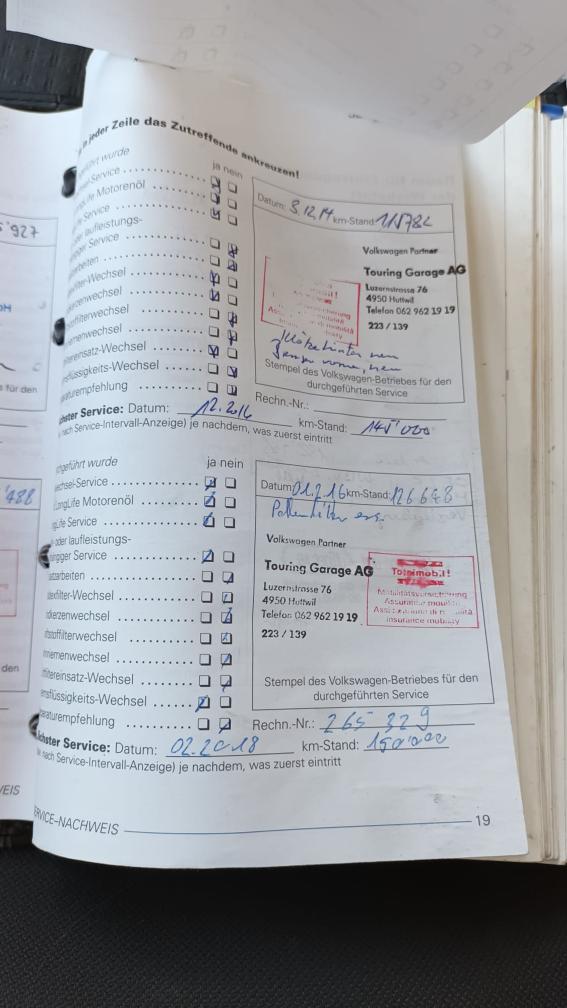 jeder Zeile das Zutreffende ankreuzen!
führt wurde
ja nein
Service
Life Motorenöl
Service
laufleistungs-
Service
arbeiten
Wechsel
kerzenwechsel
stofffilterwechsel
menwechsel
tereinsatz-Wechsel
sflüssigkeits-Wechsel
aturempfehlung
Datum: 3.12.14 km-Stand: 115782
Volkswagen Partner
Touring Garage AG
Luzernstrasse 76
4950 Huttwil
Telefon 062 962 19 19
223 / 139
Stempel des Volkswagen-Betriebes für den
durchgeführten Service
Rechn.-Nr.:
chster Service: Datum: 12.2016 km-Stand: 145'000
nach Service-Intervall-Anzeige) je nachdem, was zuerst eintritt
ngeführt wurde
ja nein
echsel-Service
LongLife Motorenöl
gLife Service
oder laufleistungs-
ngiger Service
atzarbeiten
lterfilter-Wechsel
dkerzenwechsel
ftstofffilterwechsel
hnriemenwechsel
filtereinsatz-Wechsel
msflüssigkeits-Wechsel
araturempfehlung
Datum: 01.2.16 km-Stand: 126648
Pollenfilter ers.
Volkswagen Partner
Touring Garage AG
Luzernstrasse 76
4950 Huttwil
Telefon 062 962 19 19
223 / 139
Totalmobil!
Mobilitätsversicherung
Assurance mobilité
insurance mobility
Stempel des Volkswagen-Betriebes für den
durchgeführten Service
Rechn.-Nr.: 265 329
chster Service: Datum: 02.2018 km-Stand: 150'000
nach Service-Intervall-Anzeige) je nachdem, was zuerst eintritt
SERVICE–NACHWEIS
19
'927
s für den
'488
den
VEIS